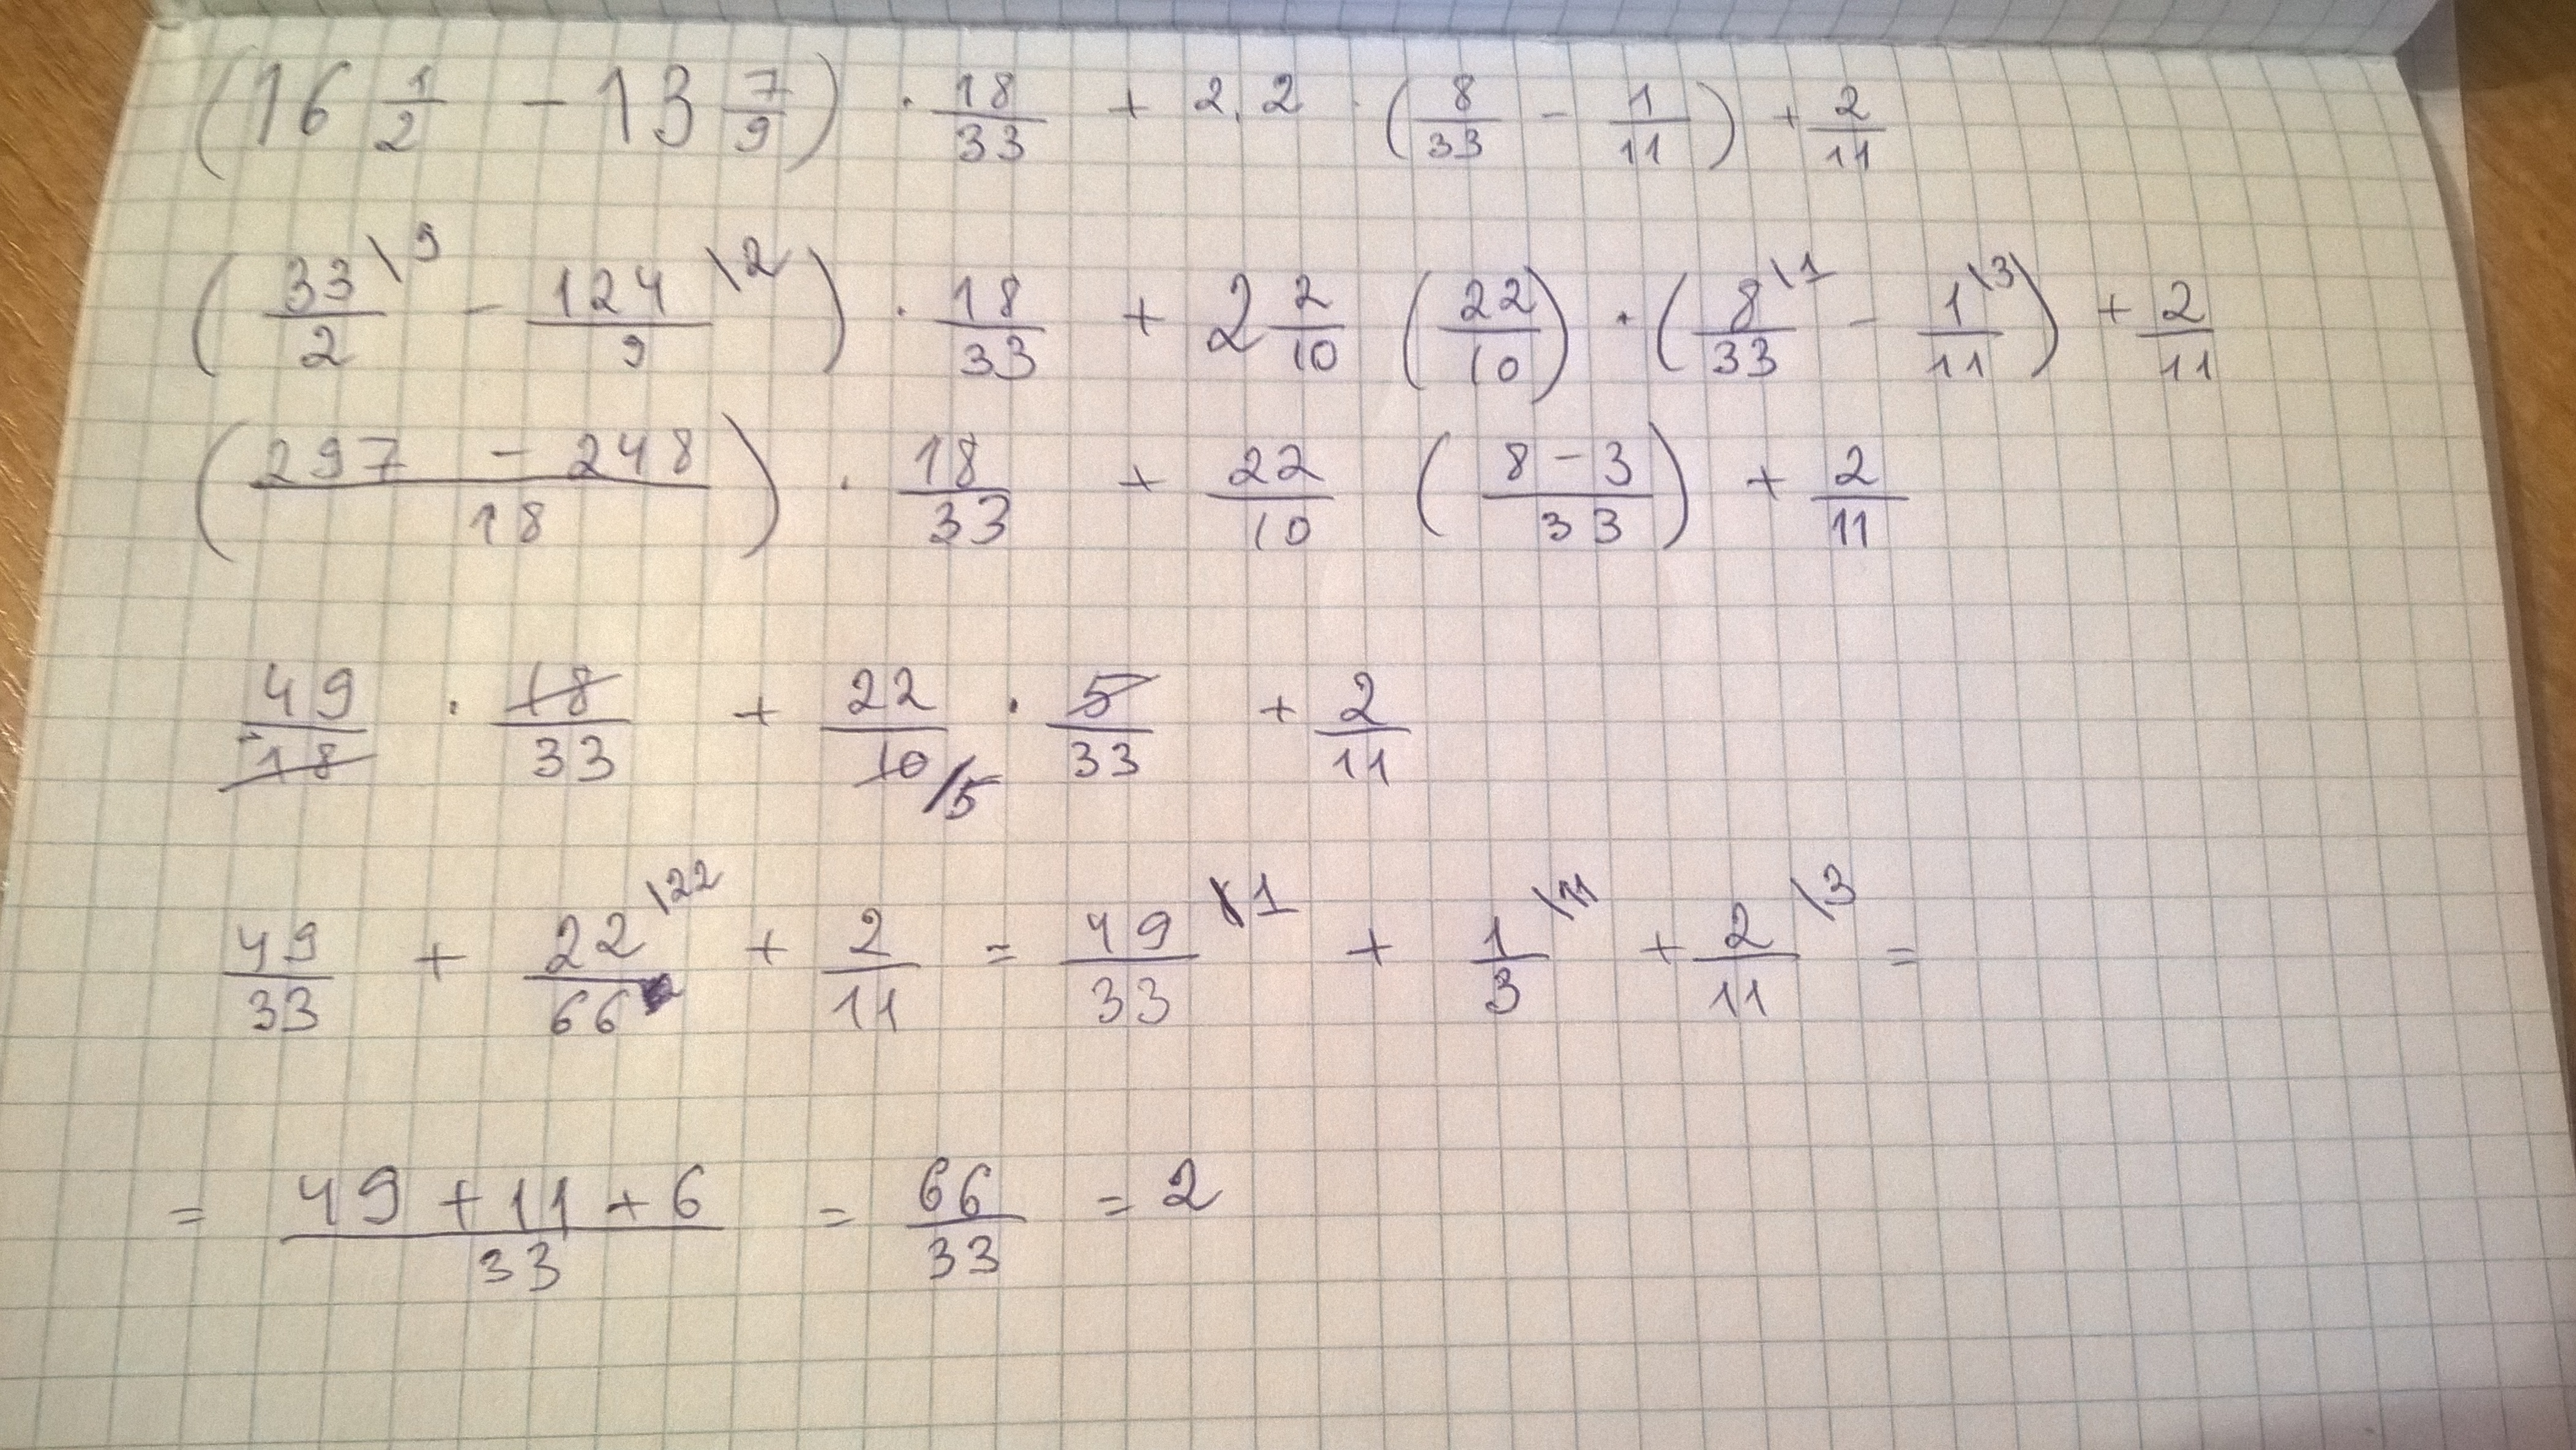 (16 1/2 - 13 7/9) · 18/33 + 2,2 · (8/33 - 1/11) + 2/11
(33/2 \9 - 124/9 \2) · 18/33 + 2 2/10 (22/10) · (8/33 \1 - 1/11 \3) + 2/11
((297 - 248)/18) · 18/33 + 22/10 ((8 - 3)/33) + 2/11
49/18 · 18/33 + 22/10 /5 · 5/33 + 2/11
49/33 + 22/66 \22 + 2/11 = 49/33 \1 + 1/3 \11 + 2/11 \3 =
= (49 + 11 + 6)/33 = 66/33 = 2